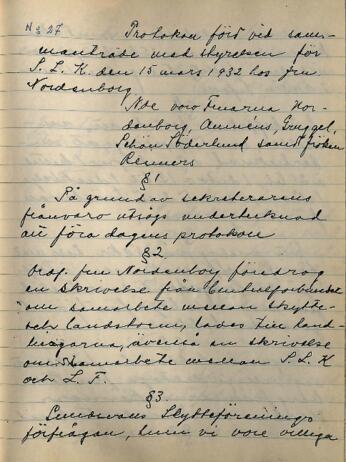 No 27
Protokoll förd vid sam-
manträde med styrelsen för
S. L. K. den 15 mars 1932 hos fru
Nordenborg
Nde voro Fruarna Nor-
denborg, Ammèns, Gruggel,
Schön Söderlund samt fröken
Renners
§ 1
På grund av sekreterarens
frånvaro utsågs undertecknad
att föra dagens protokoll
§ 2
Ordf. fru Nordenborg föredrog
en skrivelse från Centralförbundet
om samarbete mellan skytte-
och landstorm, lades till hand-
lingarna, även en skrivelse
om samarbete mellan S. L. K
och L. F.
§ 3
Skytteförenings
förfrågan, huru vi vore villiga